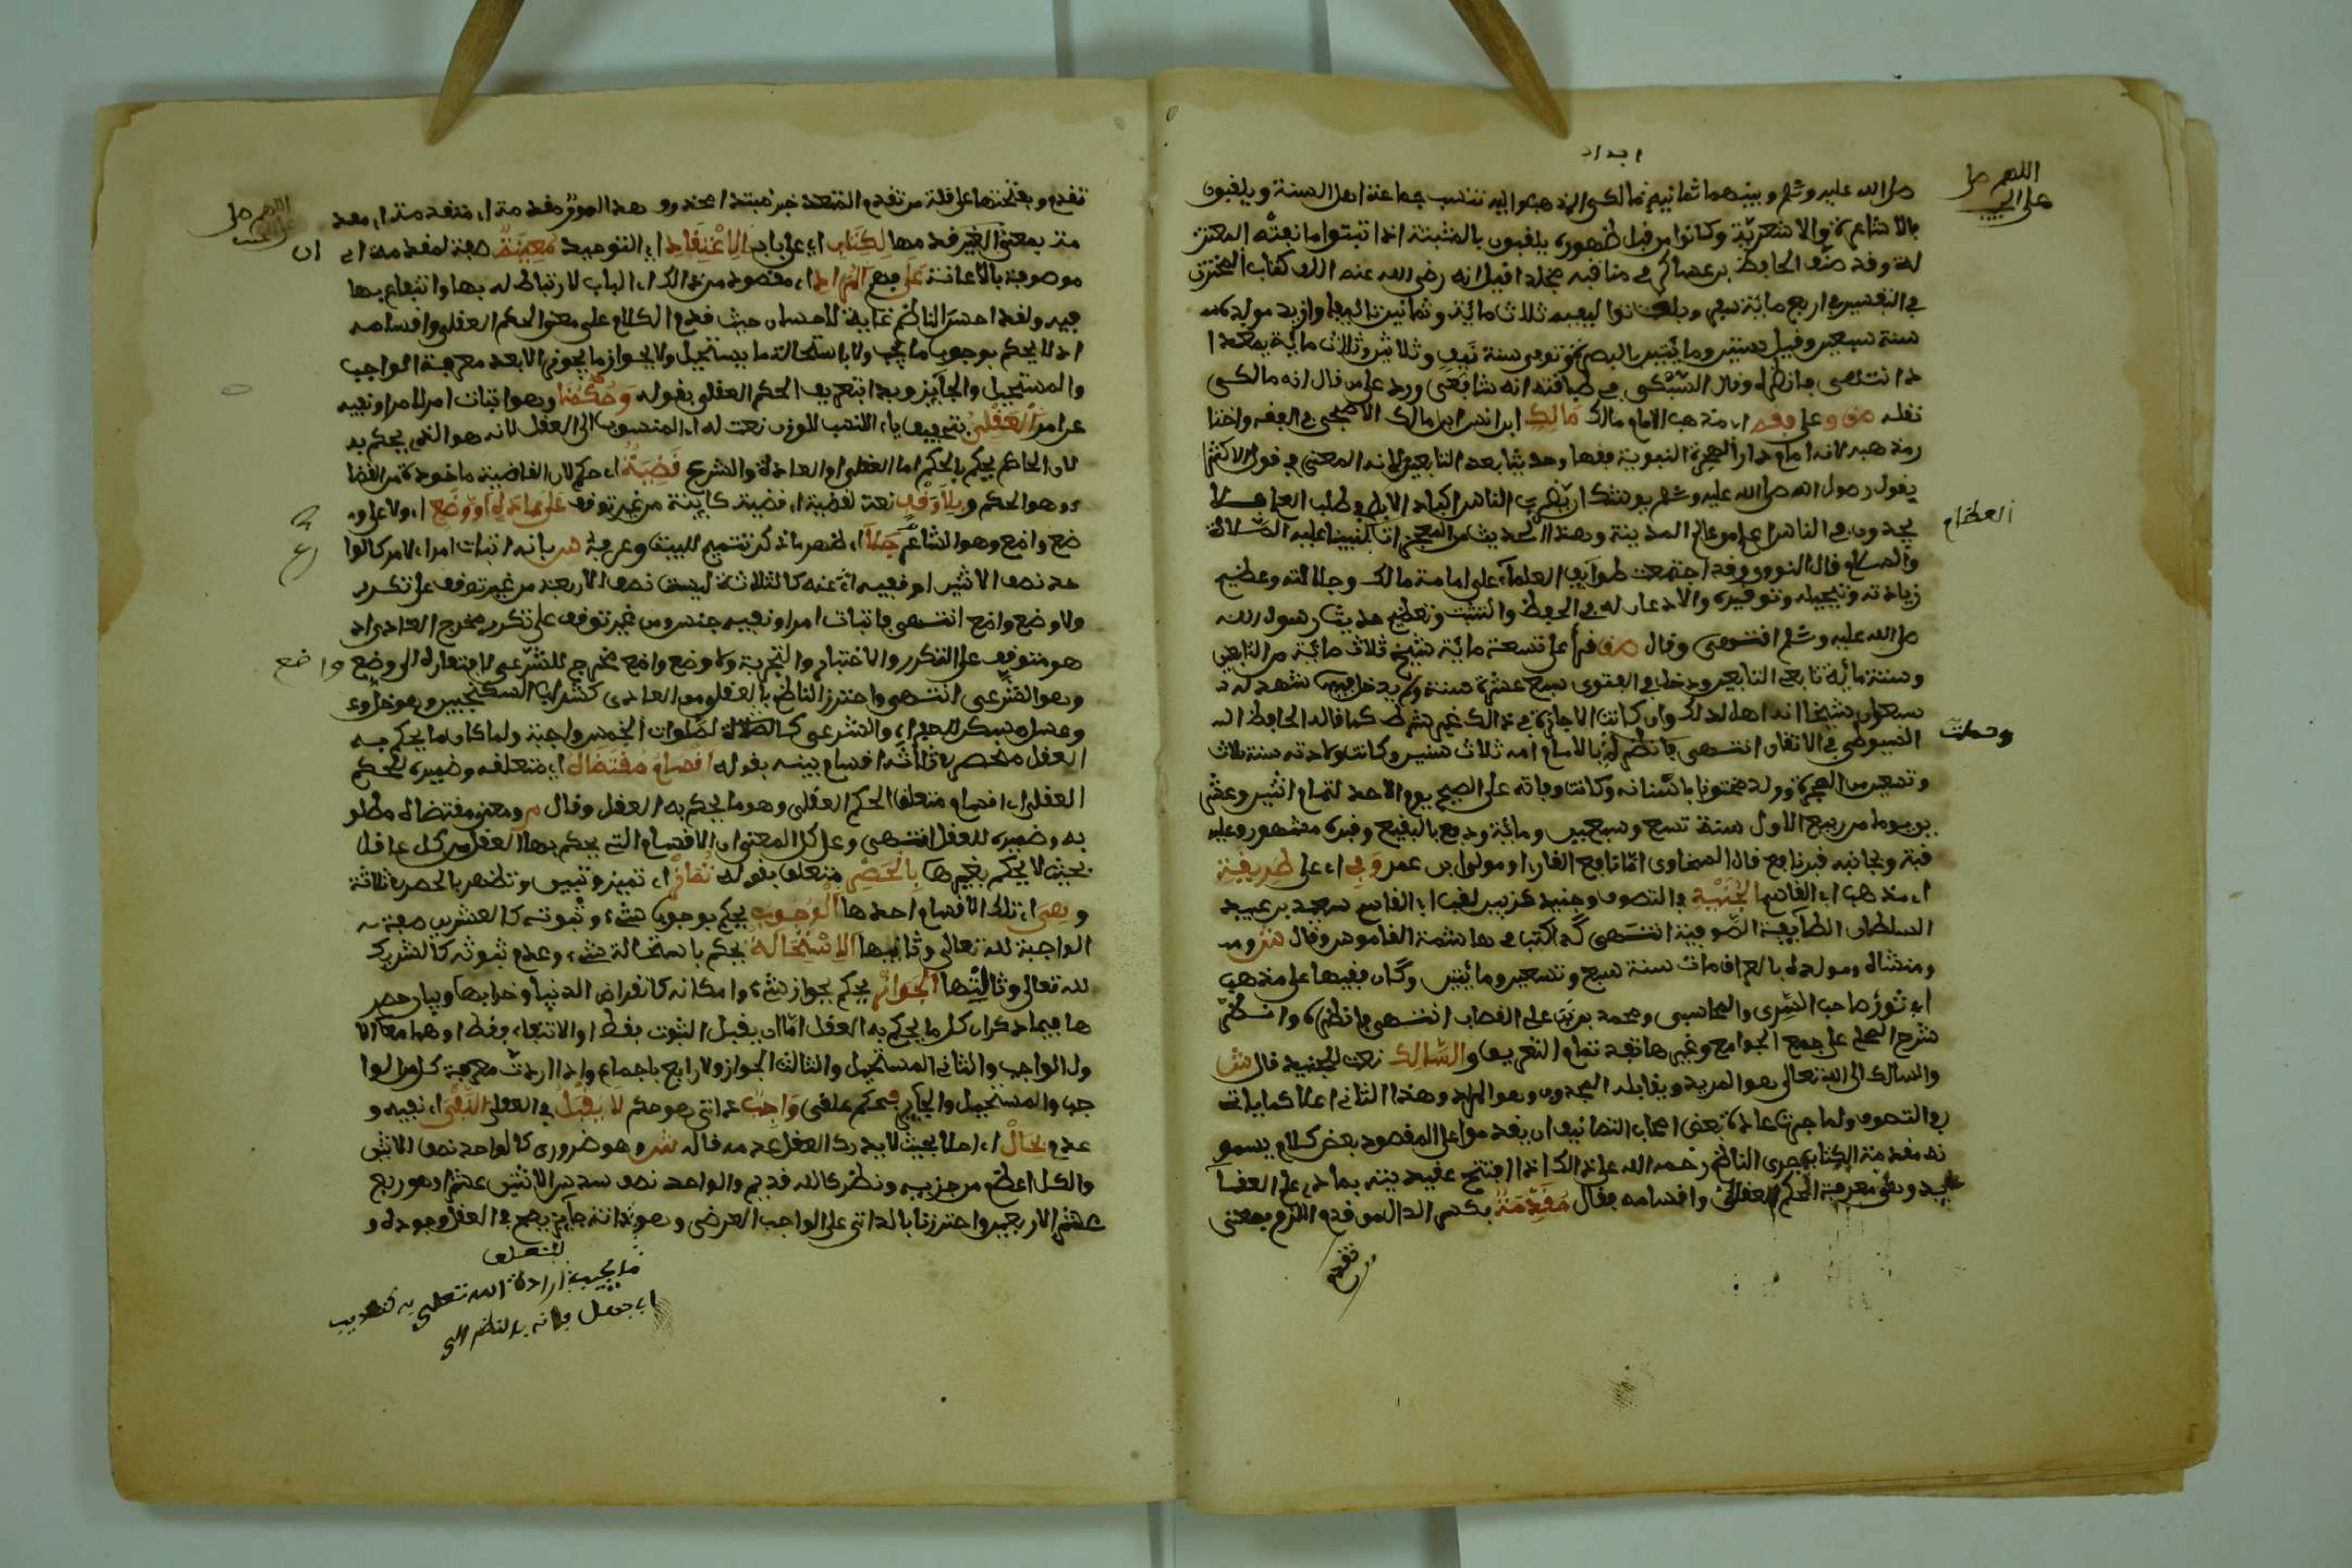 اللهم صل
على الحبيب
صلى الله عليه وسلم وبينهما ثمانية مالكي المذهب واليه تنتسب جماعة اهل السنة ويلقبون
بالاشاعرة والاشعرية وكانوا من قبل ظهوره يلقبون بالمثبتة اذا ثبتوا ما نفته المعتز
لة وقد صنف الحافظ بن عساكر في مناقبه مجلدا قيل انه رضي الله عنه الف كتاب المختزن
في التفسير في اربع مائة سفر وبلغت تواليفه ثلاث مائة وثمانين تاليفا وازيد مولده
سنة سبعين وقيل ستين ومائتين بالبصرة وتوفي سنة نيف وثلاثين وثلاث مائة ببغدا
د انتهى وقال السبكي في طبقاته انه شافعي ورد على من قال انه مالكي
نقله وعلى وفق اي مذهب الامام مالك مالك ابن انس ابن مالك الاصبحي في الفقه واختا
ر مذهبه لانه امام دار الهجرة النبوية فقها وحديثا بعد التابعين لانه المعني في قول الاكثر
يقول رسول الله صلى الله عليه وسلم يوشك ان يضرب الناس اكباد الابل في طلب العلم فلا
العظام
يجدون في الناس اعلم من عالم المدينة وهذا الحديث من المعجزات لنبينا عليه الصلاة
والسلام قال النووي وقد اجتمعت طوايف العلماء على امامة مالك وجلالته وعظيم
زيادته وتبجيله وتوقيره والاذعان له في الحفظ والتثبت وتعظيم حديث رسول الله
صلى الله عليه وسلم انتهى وقال قرأ على تسعة مائة شيخ ثلاث مائة من التابعين
وستة مائة تابعي التابعين ودخل في الفتوى سبع عشرة سنة ولم يدخل فيه شهد له
سبعون شيخا انه اهل لذلك وان كانت الاجازة في ذالك غير شرط كما قاله الحافظ
وحملت
السيوطي في الاتقان انتهى بالامام امه ثلاث سنين وكانت ولادته سنة ثلاث
وتسعين من الهجرة وولد مختونا باسنانه وكانت وفاته على الصحيح يوم الاحد لتمام اثنين وعشر
يوما من ربيع الاول سنة تسع وسبعين ومائة ودفع بالبقيع وقبره مشهور وعليه
قبة وبجانبه قبر نافع قال السخاوي اما نافع القارا ومولى بن عمر وفي اي على طريقة
اي مذهب اي القاسم الجنيد في التصوف وجنيد كزبير لقب ابي القاسم سعيد بن عبيد
السلطان الطايفة الصوفية انتهى في حاشية القاموس وقال
ومنشاه ومولده بالعراق مات سنة سبع وتسعين ومائتين وكان فقيها على مذهب
ابي ثور صاحب السري والمحاسبي ومحمد بن علي القصاب انتهى وانظر
شرح المحلى على جمع الجوامع وغيرها تمام التعريف والسالك نعت للجنيد قال ش
والسالك الى الله تعالى هو المريد ويقابله المجذوب وهو المراد وهذا الثاني اعلا كما ياتي
في التصوف ولما جرت عادة بعض اصحاب التصانيف ان يقدموا على المقصود بعض كلام يسمو
نه مقدمة الكتاب جرى الناظم رحمه الله على ذالك اذا افتتح عقيدته بما في علم العقا
يد وهي معرفة الحكم العقلي واقسامه فقال مقدمة بكسر الدال من قدم اللازم بمعنى
تقدم
اللهم صل
تقدم وبفتحتها على قلة من تقدم المتعد خبر مبتدا محذوف هذا لمؤثر مقدمة اي متقدمة اي مقد
مة بمعنى الغير قدمها لكتاب اي على باب الاعتقاد اي التوحيد معينة صفة لمقدمة اي
ان
موصوفة بالاعانة على فهم المراد اي مقصود من ذالك اي الباب لارتباط له بها وانتفاع بها
فيه ولقد احسن الناظم غاية الاحسان حيث قدم الكلام على معنى الحكم العقلي واقسامه
اذ لا يحكم بوجوب ما يجب ولا باستحالة ما يستحيل ولا بجواز ما يجوز الا بعد معرفة الواجب
والمستحيل والجايز وبدا بتعريف الحكم العقلي بقوله وحكمنا وهو اثبات امر لامر او نفيه
عن امر العقلي بتخفيف ياء النسب للوزن نعت له اي المنسوب الى العقل لانه هو الذي يحكم به
لان الحاكم يحكم بالحكم اما العقل او العادة والشرع قضية اي حكم لان القاضية ماخوذة من القضا
ء وهو الحكم وبلا وقف نعت لقضية اي قضية كاينة من غير توقف على عادة او وضع اي ولا على و
ضع واضع وهو الشاعر جلا اي ظهر ما ذكر تتميم للبيت وعرفه بانه اثبات امر لامر كالوا
حد نصف الاثنين او نفيه عنه كالثلاثة ليست نصف الاربعة من غير توقف على تكرر
ولا وضع واضع انتهى فاثبات امر او نفيه جنس ومن غير توقف على تكرر مخرج العادي اذ
هو متوقف على التكرر والاختبار والتجربة ولا وضع واضع مخرج للشرعي لافتقاره الى وضع
واضع
وهو الشرعي انتهى واحترز الناظم بالعقلي من العادي كشراب السكنجبين وهو خل و
وعسل مسكن للصفراء والشرعي كالصلاة الصلوات الخمس واجبة ولما كان ما يحكم به
العقل منحصرة ثلاثة اقسام بينه بقوله اقسام مقتضاه اي متعلقه وضميره للحكم
العقلي اي اقسام متعلق الحكم العقلي وهو ما يحكم به العقل وقال م ومعنى مقتضاه مطلو
به وضميره للعقل انتهى وعلى كل المعنى ان الاقسام التي يحكم بها العقل من كل عاقل
بحيث لا يحكم بغيرها بالحصر متعلق بقوله تماز اي تميز وتبين وتظهر بالحصر ثلاثة
وهي اي تلك الاقسام احدها الوجوب يحكم بوجوب شيء وثبوته كالعشرين صفة
الواجبة لله تعالى وثانيها الاستحالة يحكم باستحالة شيء وعدم ثبوته كالشريك
لله تعالى وثالثها الجواز يحكم بجواز شيء وامكانه كانقراض الدنيا وخرابها وبيان حصر
ها فيما ذكر ان كل ما يحكم به العقل اما ان يقبل الثبوت فقط او الانتفاء فقط او هما معا الا
ول الواجب والثاني المستحيل والثالث الجواز ولا رابع باجماع واذا اردت معرفة كل من الوا
جب والمستحيل والجايز فحكم عقلي واجب ذاتي هو حكم لا يقبل في العقل النفي اي نفيه و
عدم بحال اي اصلا بحيث لا يدرك العقل عدمه قال ش وهو ضروري كالواحد نصف الاثنين
والكل اعظم من جزئيه ونظري كالله قديم والواحد نصف سدس الاثنين عشر اوهو ربع
عشر الاربعين واحترزنا بالذاتي على الواجب العرضي وهو ذاته جايز يصح في العقل وجوده و
لتعلق
ما يجب ارادة الله تعلى به كتعذيب
ابي جهل فانه بالنظر الى